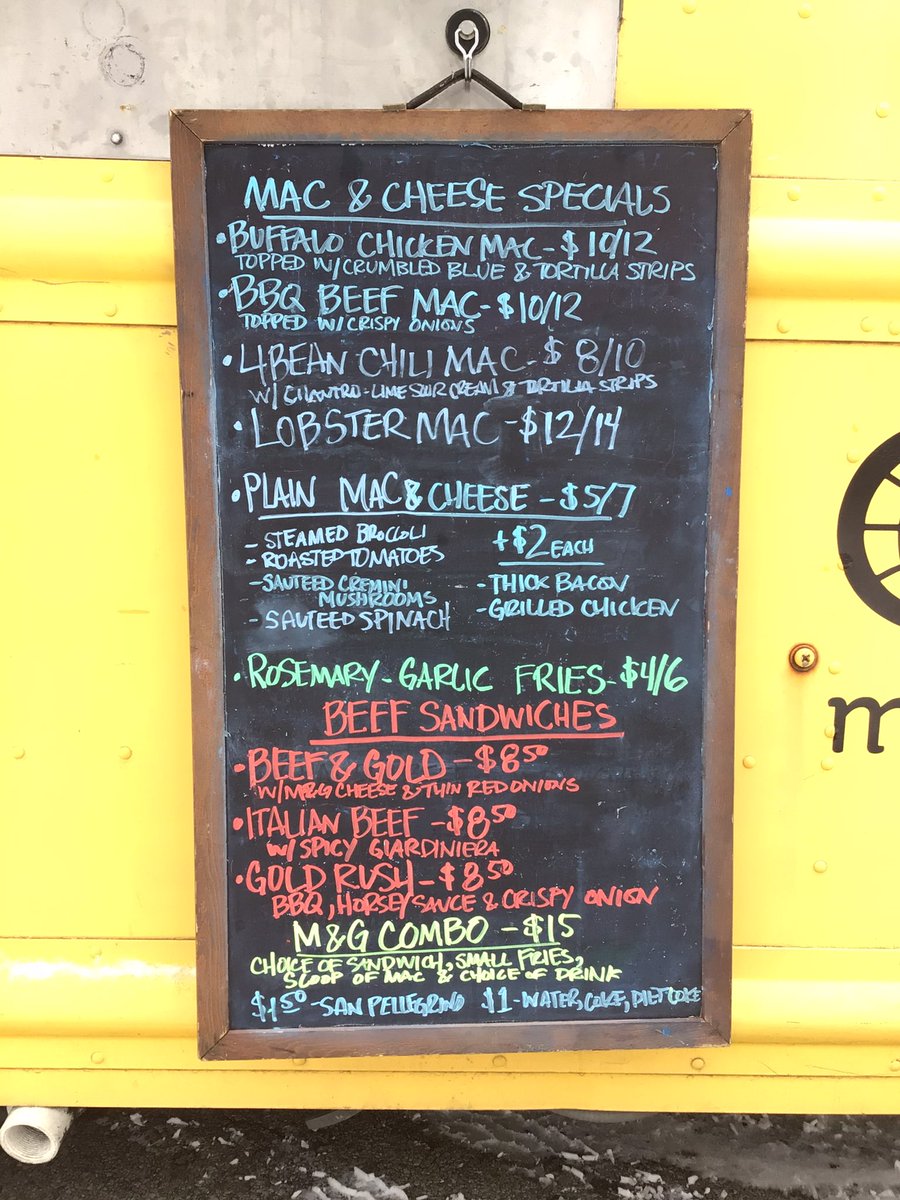 MAC & CHEESE SPECIALS
• BUFFALO CHICKEN MAC - $10/12
TOPPED W/ CRUMBLED BLUE & TORTILLA STRIPS
• BBQ BEEF MAC - $10/12
TOPPED W/ CRISPY ONIONS
• 4 BEAN CHILI MAC - $8/10
W/ CILANTRO-LIME SOUR CREAM & TORTILLA STRIPS
• LOBSTER MAC - $12/14
• PLAIN MAC & CHEESE - $5/7
- STEAMED BROCCOLI
- ROASTED TOMATOES
- SAUTEED CREMINI
MUSHROOMS
- SAUTEED SPINACH
+ $2 EACH
- THICK BACON
- GRILLED CHICKEN
• ROSEMARY - GARLIC FRIES - $4/6
BEEF SANDWICHES
• BEEF & GOLD - $8.50
W/ M&G CHEESE & THIN RED ONIONS
• ITALIAN BEEF - $8.50
W/ SPICY GIARDINIERA
• GOLD RUSH - $8.50
BBQ, HORSEY SAUCE & CRISPY ONION
M&G COMBO - $15
CHOICE OF SANDWICH, SMALL FRIES,
SCOOP OF MAC & CHOICE OF DRINK
$1.50 - SAN PELLEGRINO $1 - WATER, COKE, DIET COKE
m